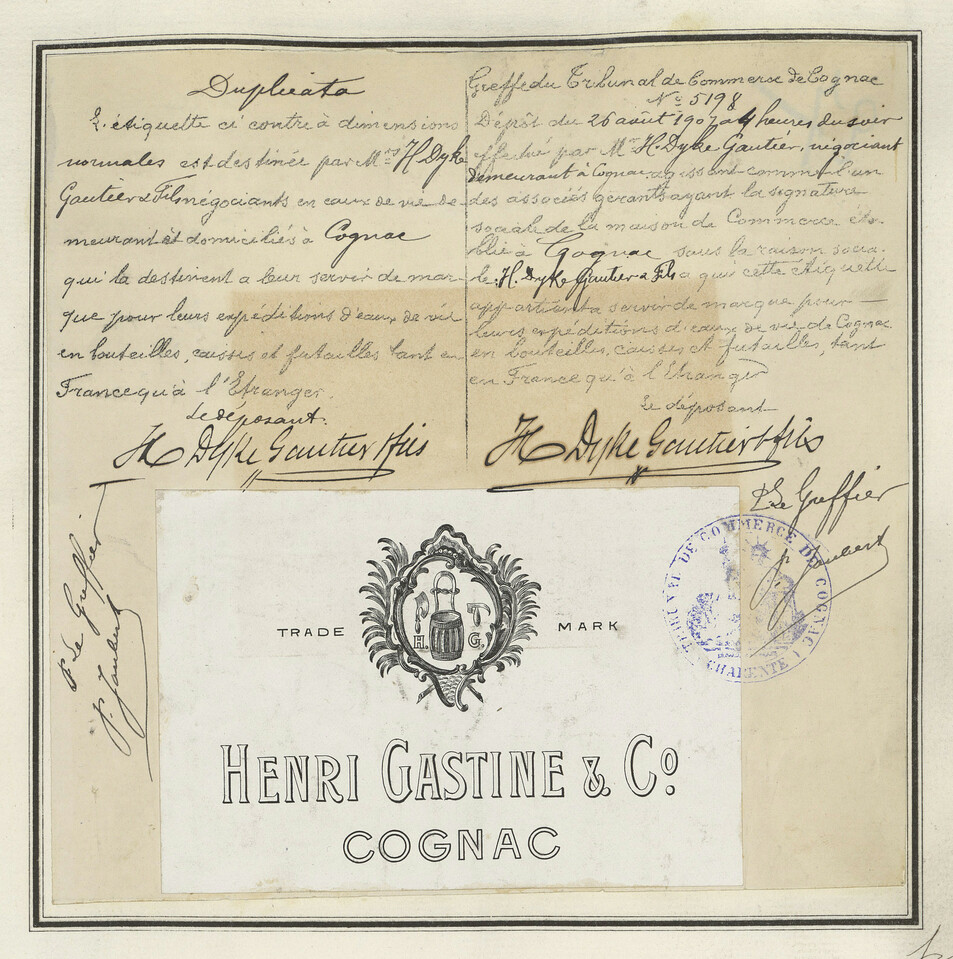 Duplicata
L'étiquette ci contre à dimensions
normales est destinée par Mrs H. Dyke
Gautier & Fils négociants en eaux de vie de-
meurant et domiciliés à Cognac
qui la destinent a leur servir de mar-
que pour leurs expéditions d'eaux de vie
en bouteilles, caisses et futailles tant en
France qu'à l'Etranger.
Le déposant.
H Dyke Gautier & fils
Greffe du Tribunal de Commerce de Cognac
No 5198
Dépôt du 26 août 1907 à 4 heures du soir
effectué par Mr H. Dyke Gautier, négociant
demeurant à Cognac, agissant comme l'un
des associés gérants ayant la signature
sociale de la maison de Commerce éta-
blie à Cognac sous la raison socia-
le, H. Dyke Gautier & Fils a qui cette étiquette
appartient a servir de marque pour
leurs expéditions d'eaux de vie de Cognac
en bouteilles, caisses et futailles, tant
en France qu'à l'Etranger
Le déposant
H Dyke Gautier & fils
P. Le Greffier
P. Joubert
P. Le Greffier
P. Joubert
TRIBUNAL DE COMMERCE DE COGNAC
CHARENTE
TRADE MARK
H. G.
HENRI GASTINE & Co.
COGNAC